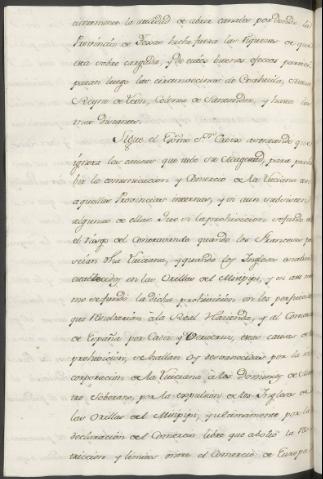 la utilidad de abrir canales por donde la
Provincia de Texas heche fuera las riquezas de que
está sobre cargada, y de cuios buenos efectos partici-
paran luego las circunvecinas de Coahuila, Nuevo
Reyno de Leon, Colonia de Santander, y hasta las
mas distantes.
Sigue el Exmo. Sr. Croix asentando que
ignora las causas que tubo Su Magestad, para prohi-
bir la comunicacion y Comercio de la Luiciana con
aquellas Provincias internas, y si
algunas de ellas. Fue si la prohivicion se fundo en
el riesgo del Contravando quando los Franceses po-
seian la Luiciana, y quando los Ingleses estaban
establecidos en las Orillas del Misipipi, y si asi mis-
mo se fundó la dicha prohivicion en los perjuicios
que resultarian à la Real Hacienda, y al Comercio
de España por Cadiz y Veracruz, estas causas de
prohivicion, se hallan oy desvanecidas por la in-
corporacion de la Luiciana à los Dominios de Nues-
tro Soberano, por la expulsion de los Ingleses de
las Orillas del Misipipi, y ultimamente por la
declaracion del Comercio libre que abolió la res-
triccion y limites entre el Comercio de Europa